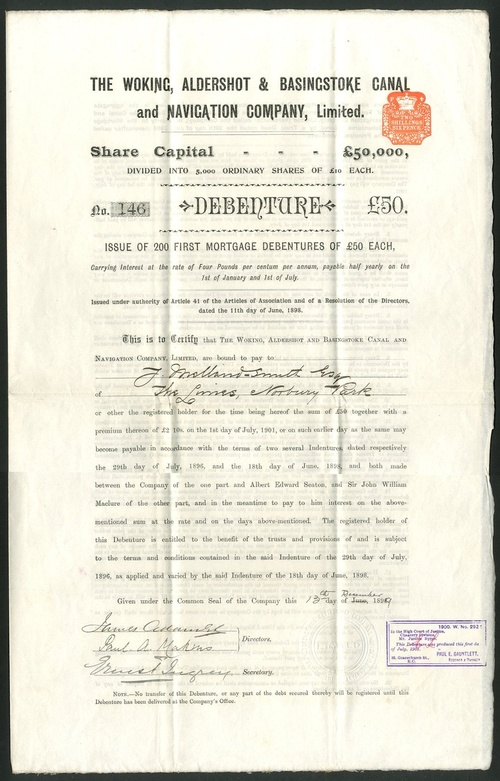 THE WOKING, ALDERSHOT & BASINGSTOKE CANAL
and NAVIGATION COMPANY, Limited.
TWO
SHILLINGS
SIX PENCE
Share Capital - - - £50,000,
DIVIDED INTO 5,000 ORDINARY SHARES OF £10 EACH.
No. 146 DEBENTURE £50.
ISSUE OF 200 FIRST MORTGAGE DEBENTURES OF £50 EACH,
Carrying Interest at the rate of Four Pounds per centum per annum, payable half yearly on the
1st of January and 1st of July.
Issued under authority of Article 41 of the Articles of Association and of a Resolution of the Directors,
dated the 11th day of June, 1898.
This is to Certify that THE WOKING, ALDERSHOT AND BASINGSTOKE CANAL AND
NAVIGATION COMPANY, LIMITED, are bound to pay to
Smith Esq
of The Limes, Norbury Park
or other the registered holder for the time being hereof the sum of £50 together with a
premium thereon of £2 10s. on the 1st day of July, 1901, or on such earlier day as the same may
become payable in accordance with the terms of two several Indentures, dated respectively
the 29th day of July, 1896, and the 18th day of June, 1898, and both made
between the Company of the one part and Albert Edward Seaton, and Sir John William
Maclure of the other part, and in the meantime to pay him interest on the above-
mentioned sum at the rate and on the days above-mentioned. The registered holder of
this Debenture is entitled to the benefit of the trusts and provisions of and is subject
to the terms and conditions contained in the said Indenture of the 29th day of July,
1896, as applied and varied by the said Indenture of the 18th day of June, 1898.
Given under the Common Seal of the Company this 13th day of December June, 1899
Directors.
Paul A. Makins
Secretary.
NOTE.—No transfer of this Debenture, or any part of the debt secured thereby will be registered until this
Debenture has been delivered at the Company's Office.
1900. W. No. 292
In the High Court of Justice,
Chancery Division,
Mr. Justice
This Debenture was produced this first day
of July,
PAUL E. GAUNTLETT,
RECEIVER & MANAGER
E.C.